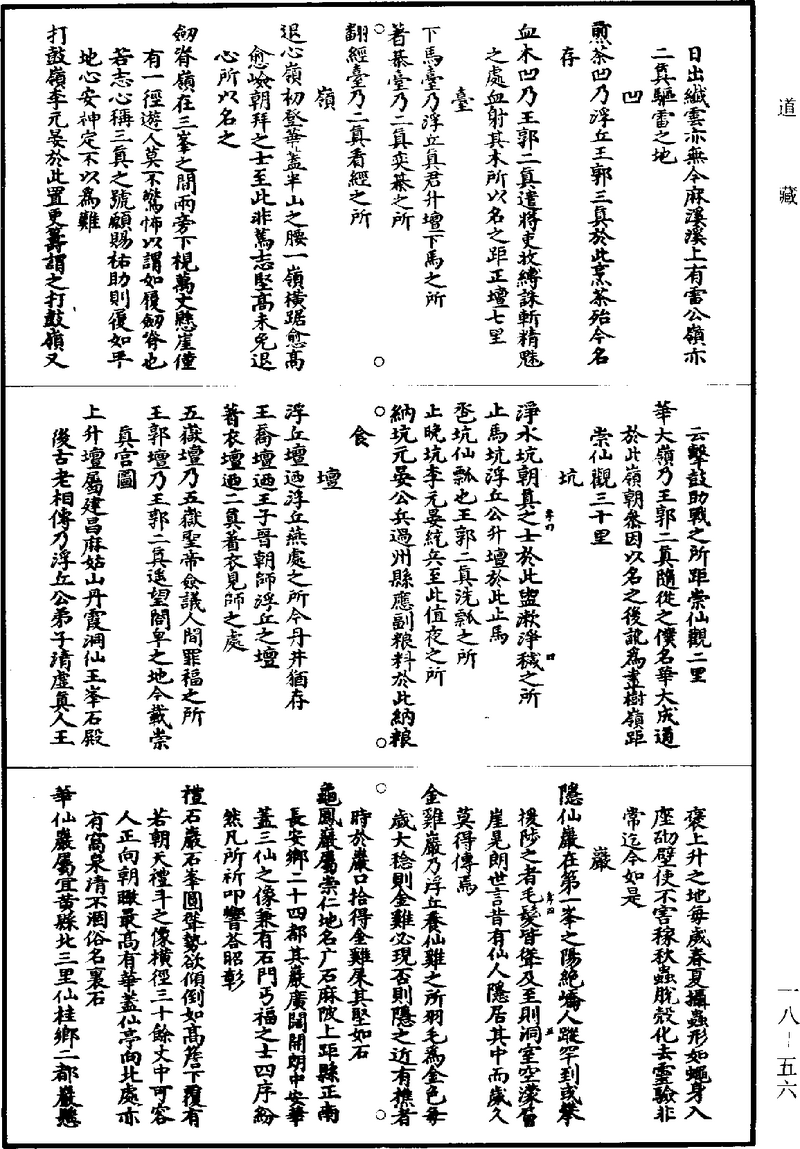 道藏
日出纖雲亦無今麻溪溪上有雷公嶺亦
二真驅雷之地
凹
煎茶凹乃浮丘王郭三真於此烹茶殆今名
存
血木凹乃王郭二真遣將吏收縛誅斬精魅
之處血射其木所以名之距正壇七里
臺
下馬臺乃浮丘真君升壇下馬之所
著棊臺乃二真奕棊之所
翻經臺乃二真看經之所
嶺
退心嶺初登華蓋半山之腰一嶺橫踞愈高
愈嶮朝拜之士至此非篤志堅高未免退
心所以名之
劒脊嶺在三峯之間兩旁下梘萬丈懸崖僅
有一徑遊人莫不驚怖以謂如履劒脊也
若志心稱三真之號願賜祐助則履如平
地心安神定不以為難
打鼓嶺李元晏於此置更籌謂之打鼓嶺又
云擊鼓助戰之所距崇仙觀二里
華大嶺乃王郭二真隨從之僕名華大成道
於此嶺朝參因以名之後訛為畫樹嶺距
崇仙觀三十里
坑
淨水坑朝真之士於此盥漱淨穢之所
止馬坑浮丘公升壇於此止馬
匏坑仙瓢也王郭二真洗瓢之所
止晚坑李元晏統兵至此值夜之所
納坑元晏公兵過州縣應副粮料於此納粮
食
壇
浮丘壇迺浮丘燕處之所今丹井猶存
王喬壇迺王子晉朝師浮丘之壇
著衣壇迺二真着衣見師之處
五嶽壇乃五嶽聖帝僉議人間罪福之所
王郭壇乃王郭二真遙望閤皁之地今戴崇
真宫圖
上升壇屬建昌麻姑山丹霞洞仙王峯石殿
後古老相傳乃浮丘公弟子清虛真人王
褒上升之地每歲春夏攝蟲形如蠅身入
座砌壁使不害稼秋蟲脫殼化去靈驗非
常迄今如是
巖
隱仙巖在第一峯之陽絕嶠人蹤罕到或攀
援陟之者毛髮皆傑及至則洞室空濛層
崖晃朗世言昔有仙人隱居其中而歲久
莫得傳焉
金雞巖乃浮丘養仙雞之所羽毛為金色每
歲大稔則金雞必現否則隱之近有樵者
時於巖口拾得金雞屎其堅如石
龜鳳巖屬崇仁地名广石麻陂上距縣正南
長安鄉二十四都其巖廣闊開朗中安華
蓋三仙之像兼有石門丐福之士四序紛
然凡所祈叩響荅昭彰
禮石巖石峯圓聳勢欲傾倒如高簷下覆有
若朝天禮斗之像橫徑三十餘丈中可容
人正向朝暾最高有華蓋仙亭向北處亦
有窩泉清不涸俗名裏石
華仙巖屬宜黄縣北三里仙桂鄉二都巖懸
一八－五六